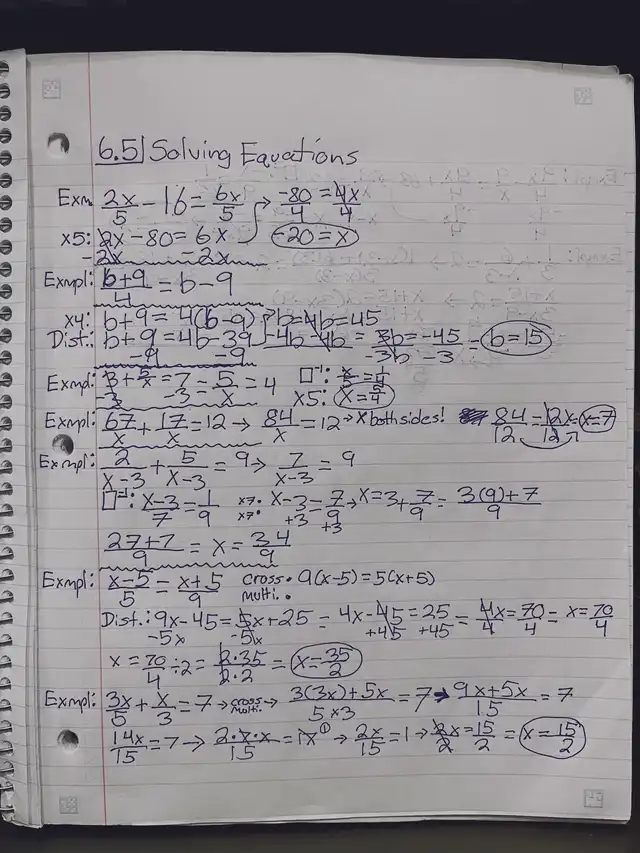 6.5 | Solving Equations
Exm. 2x/5 - 16 = 6x/5 → -80/4 = 4x/4
x5: 2x - 80 = 6x (-20 = x)
-2x -2x
Exmpl: b+9/4 = b - 9
x4: b+9 = 4(b-9) b = 4b = 45
Dist.: b+9 = 4b - 39 -4b -4b = 3b = -45 = (b = 15)
-9 -9 -3b -3
Exmpl: 3 + 5/x = 7 = 5/x = 4 □⁻¹: x/5 = 1/4
-3 -3 x5: (x = 5/4)
Exmpl: 67/x + 17/x = 12 → 84/x = 12 → x both sides! 84/12 = 12x/12 = (x = 7)
Exmpl: 2/x-3 + 5/x-3 = 9 → 7/x-3 = 9
□⁻¹: x-3/7 = 1/9 x7• x7• x-3 = 7/9 → x = 3 + 7/9 = 3(9)+7/9
+3 +3
27+7/9 = x = 34/9
Exmpl: x-5/5 = x+5/9 cross• multi.• 9(x-5) = 5(x+5)
Dist.: 9x - 45 = 5x + 25 = 4x - 45 = 25 = 4x/4 = 70/4 = x = 70/4
-5x -5x +45 +45
x = 70/4 ÷ 2 = 2•35/2•2 = (x = 35/2)
Exmpl: 3x/5 + x/3 = 7 → cross multi. → 3(3x)+5x/5x3 = 7 → 9x+5x/15 = 7
14x/15 = 7 → 2•7•x/15 = 1x① → 2x/15 = 1 → 2x/2 = 15/2 = (x = 15/2)